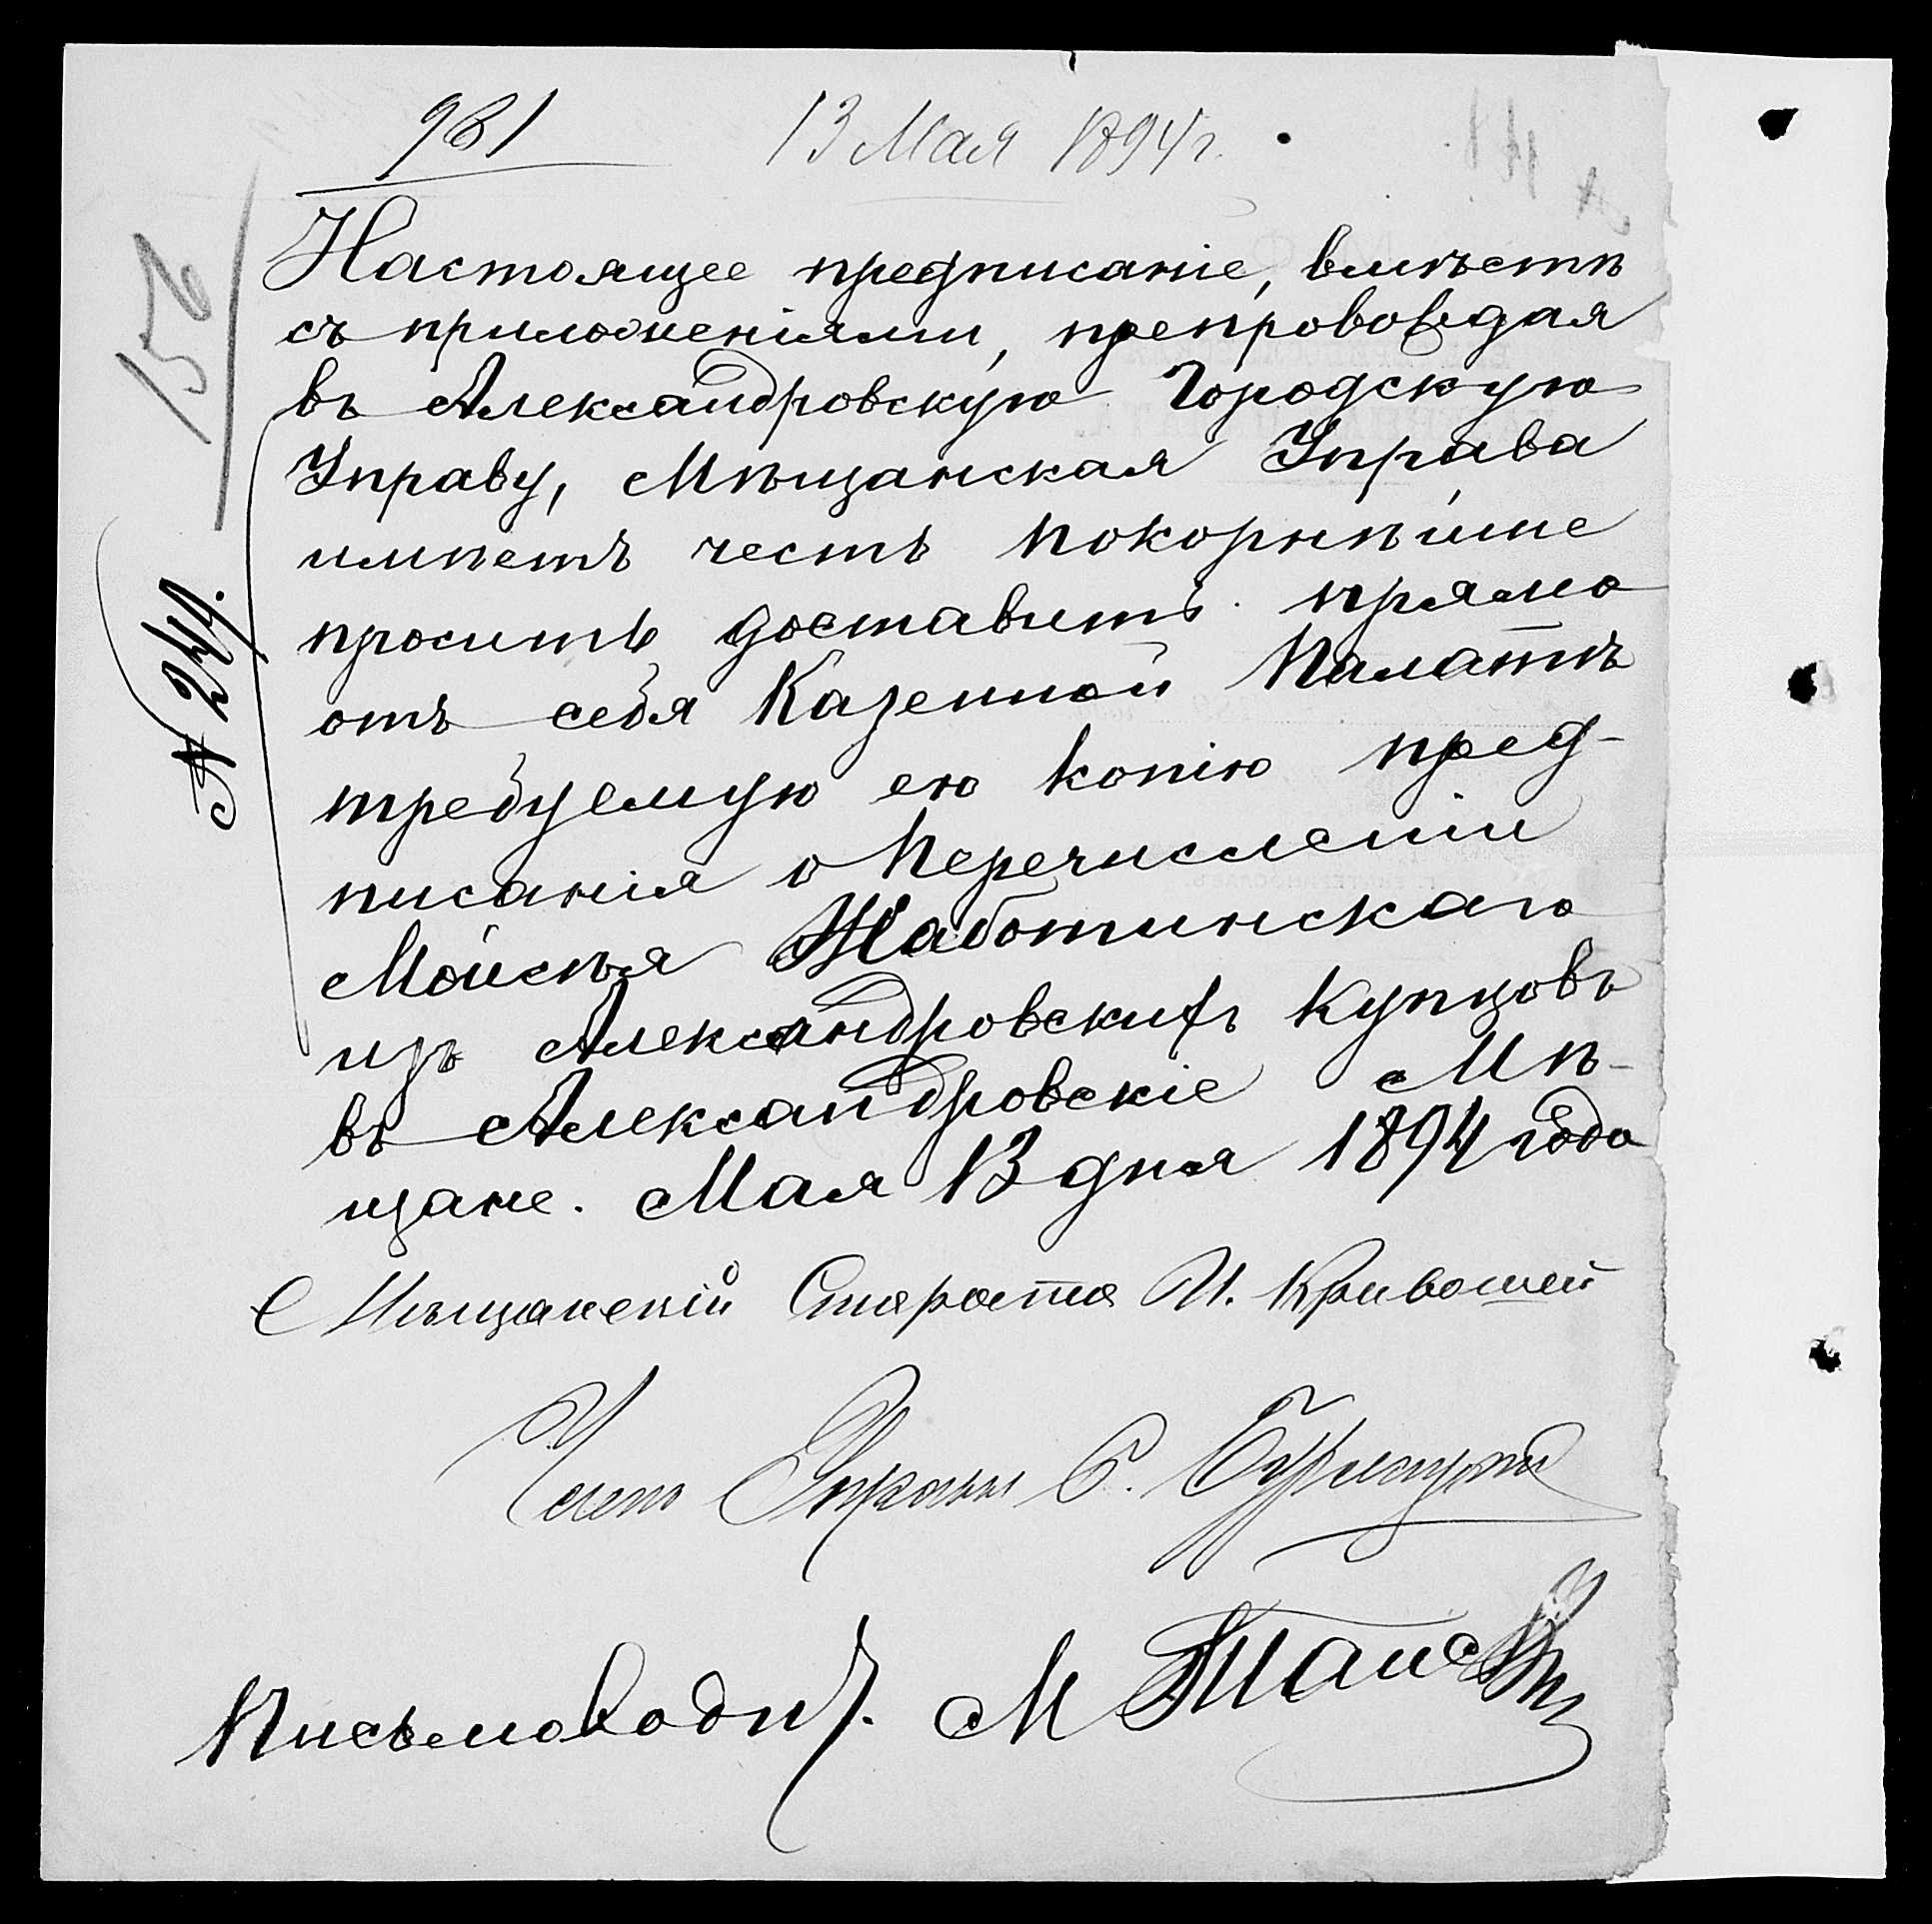 981 13 Мая 1894 г.
156
№ 244.
Настоящее предписаніе, вмѣстѣ
съ приложеніями, препровождая
въ Александровскую Городскую
Управу, Мѣщанская Управа
имѣетъ честь покорнѣйше
просить доставить прямо
отъ себя Казенной Палатѣ
требуемую ею копію пред-
писанія о перечисленіи
Мойсѣя Жаботинскаго
изъ Александровскихъ купцовъ
въ Александровскіе Мѣ-
щане. Мая 13 дня 1894 года
Мѣщанскій Староста И. Кривошей
Член Управы С.
Письмоводит. М